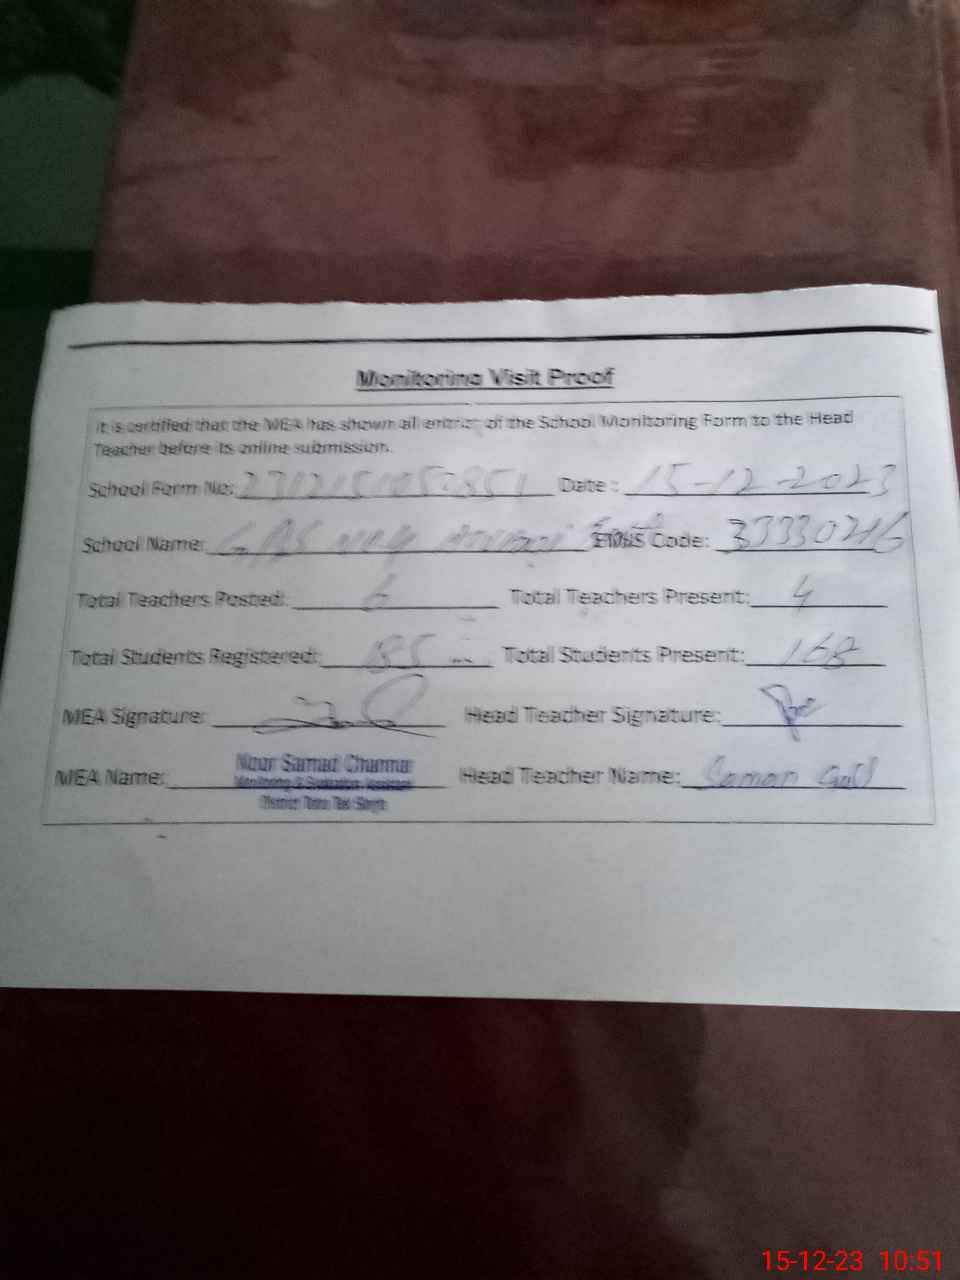 Monitoring Visit Proof
It is certified that the MEA has shown all entries of the School Monitoring Form to the Head
Teacher before its online submission.
School Form No: Date: 15-12-2023
School Name: EMIS Code: 33330246
Total Teachers Posted: 6 Total Teachers Present: 4
Total Students Registered: 185 Total Students Present: 168
MEA Signature: Head Teacher Signature:
MEA Name: Noor Samad Channar Head Teacher Name: Saman Gull
Monitoring & Evaluation Assistant
District Toba Tek Singh
15-12-23 10:51